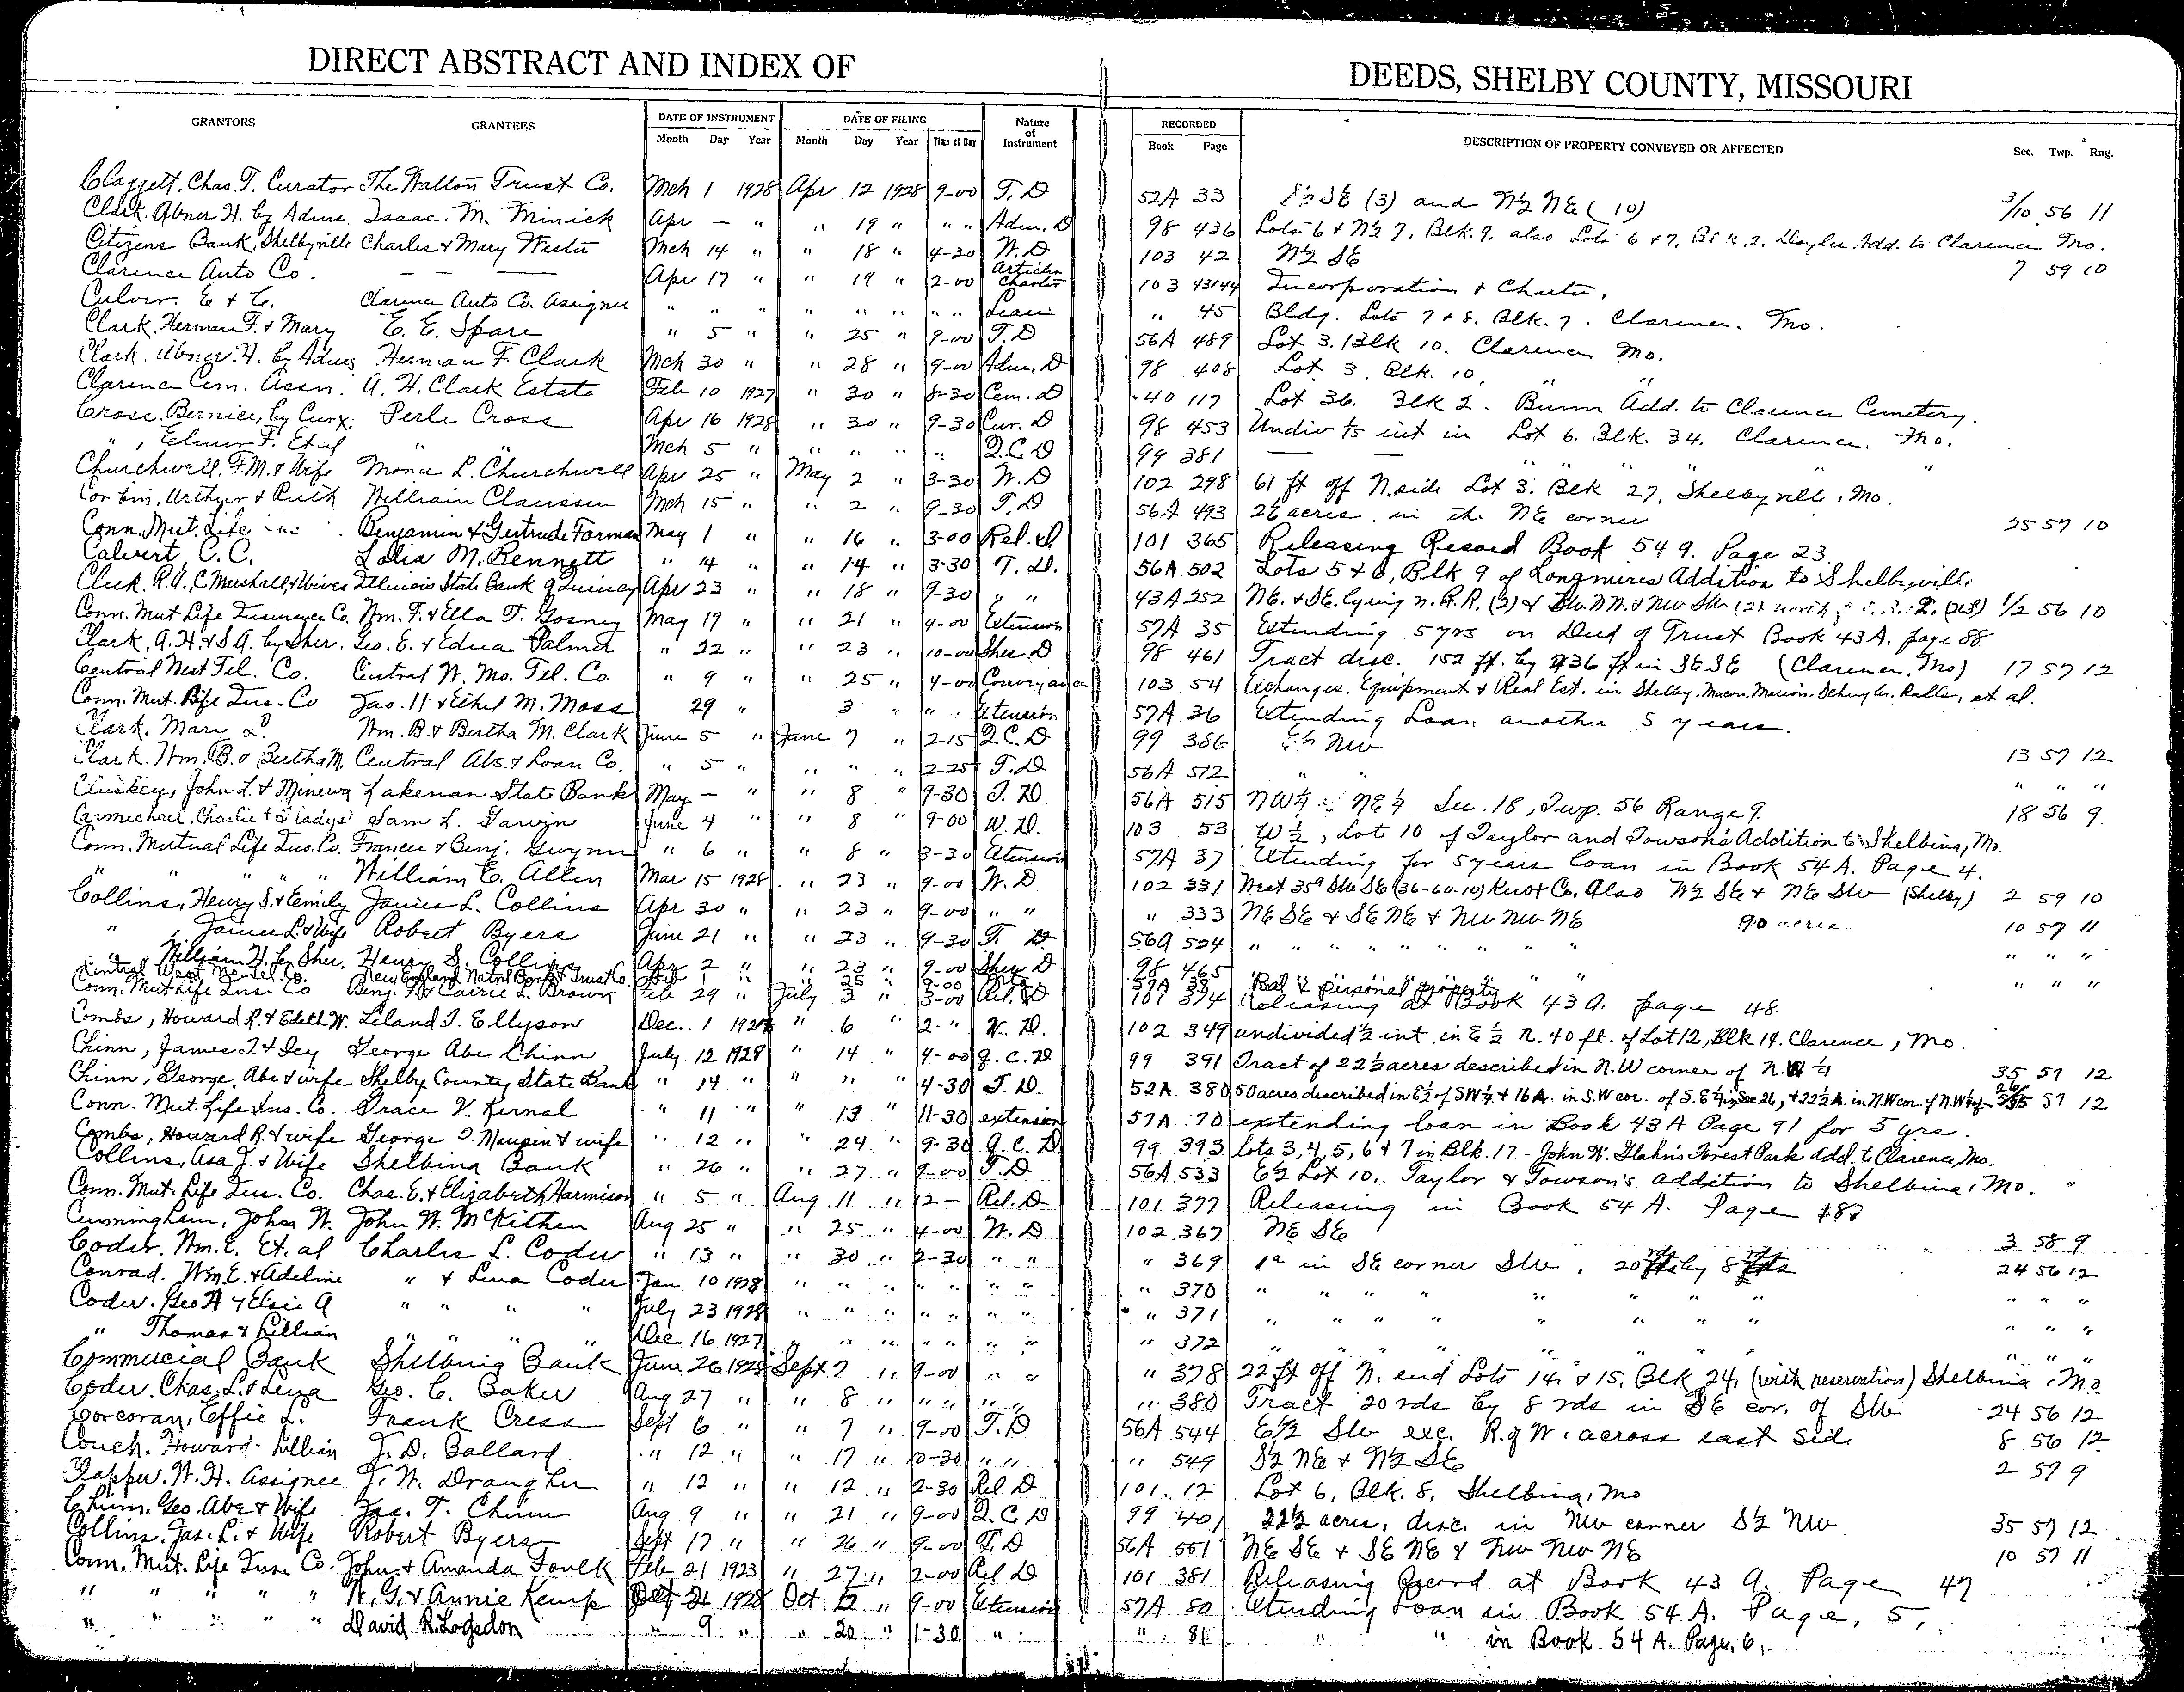 DIRECT ABSTRACT AND INDEX OF DEEDS, SHELBY COUNTY, MISSOURI
GRANTORS GRANTEES DATE OF INSTRUMENT DATE OF FILING Nature of Instrument RECORDED DESCRIPTION OF PROPERTY CONVEYED OR AFFECTED
Month Day Year Month Day Year Time of Day Book Page Sec. Twp. Rng.
Claggett, Chas. T. Curator The Walton Trust Co. Mch 1 1928 Apr 12 1928 9-00 T. D 52A 33 S½ SE (3) and N½ NE (10) 3/10 56 11
Clark. Abner H. by Admr. Isaac. M. Minick Apr — " " 19 " " " Adm. D 98 436 Lots 6 & N½ 7, Blk. 9. also Lots 6 & 7, Blk. 2, Add. to Clarence Mo.
Citizens Bank, Shelbyville Charles & Mary Wester Mch 14 " " 18 " 4-30 W. D 103 42 N½ SE 7 59 10
Clarence Auto Co. — — — Apr 17 " " 19 " 2-00 Articles Charter 103 43+44 Incorporation & Charter,
Culver. E & C. Clarence Auto Co. Assignee " " " " " " " " Lease " 45 Bldg. Lots 7 & 8. Blk. 7. Clarence. Mo.
Clark, Herman F. & Mary E. E. Spare " 5 " " 25 " 9-00 T. D 56A 489 Lot 3. Blk 10. Clarence Mo.
Clark. Abner. H. by Admr Herman F. Clark Mch 30 " " 28 " 9-00 Adm. D 98 408 Lot 3. Blk. 10, " "
Clarence Cem. Assn. A. H. Clark Estate Feb 10 1927 " 30 " 8-30 Cem. D 40 117 Lot 36. Blk 2. Add. to Clarence Cemetery.
Cross. Bernice, by Curx. Perle Cross Apr 16 1928 " 30 " 9-30 Cur. D 98 453 Undiv int in Lot 6. Blk. 34. Clarence. Mo.
" , Elmer F. Et al " " Mch 5 " " " " " Q. C. D 99 381 — — " " " " "
Churchwell, F. M. & Wife L. Churchwell Apr 25 " May 2 " 3-30 W. D 102 298 61 ft off N. side Lot 3. Blk 27, Shelbyville, Mo.
Arthur & Ruth William Claussen Mch 15 " " 2 " 9-30 T. D 56A 493 26 acres. in the NE corner 25 57 10
Conn. Mut. Life. Ins Benjamin & Gertrude Forman May 1 " " 16 " 3-00 Rel. D 101 365 Releasing Record Book 54 9. Page 23.
Calvert, C. C. Lolia M. Bennett " 14 " " 14 " 3-30 T. D. 56A 502 Lots 5 & 6, Blk 9 of Longmires Addition to Shelbyville
Cleek. R. A., C. Marshall, & Wives Illinois State Bank of Quincy Apr 23 " " 18 " 9-30 " " 43A 252 NE. & SE. lying n. R. R. (2) & 1/2 56 10
Conn. Mut Life Insurance Co. Wm. F. & Ella T. Gosney May 19 " " 21 " 4-00 Extension 57A 35 Extending 5 yrs on Deed of Trust Book 43A. page 88
Clark, A. H. & S A. by Sher. Geo. E. & Edna Palmer " 22 " " 23 " 10-00 Sher. D 98 461 Tract desc. 152 ft. by 436 ft in SE SE (Clarence, Mo) 17 57 12
Central West Tel. Co. Central W. Mo. Tel. Co. " 9 " " 25 " 4-00 Conveyance 103 54 Exchanges. Equipment & Real Est. in Shelby. Macon. Marion. Schuyler. Ralls, et al.
Conn. Mut. Life Ins. Co Jas. H & Ethel M. Moss 29 " 3 " " Extension 57A 36 Extending Loan another 5 years.
Clark, Mary L. Wm. B. & Bertha M. Clark June 5 " June 7 " 2-15 Q. C. D 99 386 E½ NW 13 57 12
Clark. Wm. B. & Bertha M. Central Abs. & Loan Co. " 5 " " " " 2-25 T. D 56A 512 " " " " "
John L. & Minerva Lakenan State Bank May — " " 8 " 9-30 T. D. 56A 515 NW¼ NE¼ Sec. 18, Twp. 56 Range 9. 18 56 9.
Carmichael, Charlie & Gladys Sam L. Garvin June 4 " " 8 " 9-00 W. D. 103 53 W½, Lot 10 of Taylor and Towson's Addition to Shelbina, Mo.
Conn. Mutual Life Ins. Co. Frances & Benj. Gwynn " 6 " " 8 " 3-30 Extension 57A 37 Extending for 5 years loan in Book 54 A. Page 4.
" " " " " William E. Allen Mar 15 1928 " 23 " 9-00 W. D 102 331 West 35a SW SE (36-60-10) Knox Co. Also N½ SE & NE SW (Shelby) 2 59 10
Collins, Henry S. & Emily James L. Collins Apr 30 " " 23 " 9-00 " " " 333 NE SE & SE NE & NW NW NE 90 acres 10 57 11
" , James L. & Wife Robert Byers June 21 " " 23 " 9-30 T. D 56A 524 " " " " " " " " " "
" William H. by Sher. Henry S. Collins Apr 2 " " 23 " 9-00 Sher D 98 465 " " " " " "
Central West Co. New England Nat'nl Bank & Trust Co. Feb 1 " " 25 " 9-00 57A 38 Real & personal property
Conn. Mut Life Ins. Co Benj. F. & Carrie L. Brown Feb 29 " July 3 " 3-00 Rel. D 101 374 Releasing at Book 43 A. page 48.
Combs, Howard R. & Edith W. Leland T. Ellyson Dec. 1 1927 " 6 " 2-" W. D. 102 349 undivided ½ int. in E½ N. 40 ft. of Lot 12, Blk 19. Clarence, Mo.
Chinn, James T. & Icy George Abe Chinn July 12 1928 " 14 " 4-00 Q. C. D 99 391 Tract of 22½ acres described in N. W corner of N. W ¼ 35 57 12
Chinn, George. Abe & wife Shelby County State Bank " 14 " " " " 4-30 T. D. 52A 380 50 acres described in E½ of SW¼ & 16A. in S.W cor. of S. E¼ in Sec 26, & 22½ A. in N.W cor. of N.W¼ 26/35 57 12
Conn. Mut. Life Ins. Co. Grace V. Kernal " 11 " " 13 " 11-30 extension 57A 70 extending loan in Book 43 A Page 91 for 5 yrs.
Combs, Howard R. & wife George T. Maupin & wife " 12 " " 24 " 9-30 Q. C. D 99 393 lots 3, 4, 5, 6 & 7 in Blk. 17 - John W. Forest Park Add. to Clarence, Mo.
Collins, Asa J. & Wife Shelbina Bank " 26 " " 27 " 9-00 T. D 56A 533 E½ Lot 10, Taylor & Towson's addition to Shelbina, Mo.
Conn. Mut. Life Ins. Co. Chas. E. & Elizabeth Harmison " 5 " Aug 11 " 12 — Rel. D 101 377 Releasing in Book 54 A. Page
Cunningham, John W. John W. McKithen Aug 25 " " 25 " 4-00 W. D 102 367 NE SE 3 58 9
Coder. Wm. E. Et. al Charles L. Coder " 13 " " 30 " 2-30 " " " 369 1a in SE corner SW, 20 rds by 8 rds 24 56 12
Conrad. Wm. E. & Adeline " & Lena Coder Jan 10 1928 " " " " " " " 370 " " " " " " " " " " "
Coder. Geo H & Elsie A " " " " July 23 1928 " " " " " " " 371 " " " " " " " " " " "
" Thomas & Lillian " " " " Dec 16 1927 " " " " " " " 372 " " " " " " " " " " "
Commercial Bank Shelbina Bank June 26 1928 Sept 7 " 9-00 " " " 378 22 ft off N. end Lots 14. & 15. Blk 24, (with reservation) Shelbina, Mo.
Coder. Chas. L. & Lena Geo. C. Baker Aug 27 " " 8 " " " " " " 380 Tract 20 rds by 8 rds in SE cor. of SW 24 56 12
Corcoran, Effie L. Frank Cress Sept 6 " " 7 " 9-00 T. D 56A 544 E½ SW exc. R. of W. across east side 8 56 12
Couch. Howard - Lillian J. D. Ballard " 12 " " 17 " 10-30 " " " 549 S½ NE & N½ SE 2 57 9
Clapper. W. H. Assignee J. W. " 12 " " 12 " 2-30 Rel D 101. 12 Lot 6, Blk. 8, Shelbina, Mo
Chinn. Geo. Abe & Wife Jas. T. Chinn Aug 9 " " 21 " 9-00 Q. C. D 99 401 22½ acres, desc. in NW corner S½ NW 35 57 12
Collins. Jas. L. & Wife Robert Byers Sept 17 " " 26 " 9-00 T. D 56A 551 NE SE & SE NE & NW NW NE 10 57 11
Conn. Mut. Life Ins. Co. John & Amanda Foulk Feb 21 1923 " 27 " 2-00 Rel D 101 381 Releasing Record at Book 43 A. Page 47
" " " " " W. G. & Annie Kemp 1928 Oct 12 " 9-00 Extension 57A 80 Extending Loan in Book 54 A. Page, 5,
" " " " " David R. Logsdon " 9 " " 20 " 1-30 " " 81 " " in Book 54 A. Page, 6,